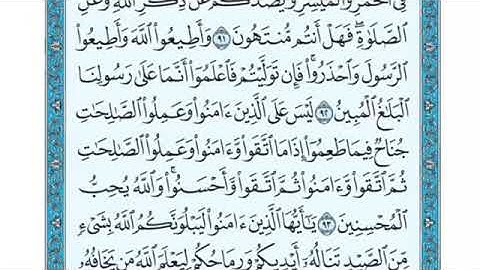 فِى ٱلْخَمْرِ وَٱلْمَيْسِرِ وَيَصُدَّكُمْ عَن ذِكْرِ ٱللَّهِ وَعَنِ
ٱلصَّلَوٰةِ ۖ فَهَلْ أَنتُم مُّنتَهُونَ ٩١ وَأَطِيعُوا۟ ٱللَّهَ وَأَطِيعُوا۟
ٱلرَّسُولَ وَٱحْذَرُوا۟ ۚ فَإِن تَوَلَّيْتُمْ فَٱعْلَمُوٓا۟ أَنَّمَا عَلَىٰ رَسُولِنَا
ٱلْبَلَـٰغُ ٱلْمُبِينُ ٩٢ لَيْسَ عَلَى ٱلَّذِينَ ءَامَنُوا۟ وَعَمِلُوا۟ ٱلصَّـٰلِحَـٰتِ
جُنَاحٌ فِيمَا طَعِمُوٓا۟ إِذَا مَا ٱتَّقَوا۟ وَّءَامَنُوا۟ وَعَمِلُوا۟ ٱلصَّـٰلِحَـٰتِ
ثُمَّ ٱتَّقَوا۟ وَّءَامَنُوا۟ ثُمَّ ٱتَّقَوا۟ وَّأَحْسَنُوا۟ ۗ وَٱللَّهُ يُحِبُّ
ٱلْمُحْسِنِينَ ٩٣ يَـٰٓأَيُّهَا ٱلَّذِينَ ءَامَنُوا۟ لَيَبْلُوَنَّكُمُ ٱللَّهُ بِشَىْءٍ
مِّنَ ٱلصَّيْدِ تَنَالُهُۥٓ أَيْدِيكُمْ وَرِمَاحُكُمْ لِيَعْلَمَ ٱللَّهُ مَن يَخَافُهُۥ